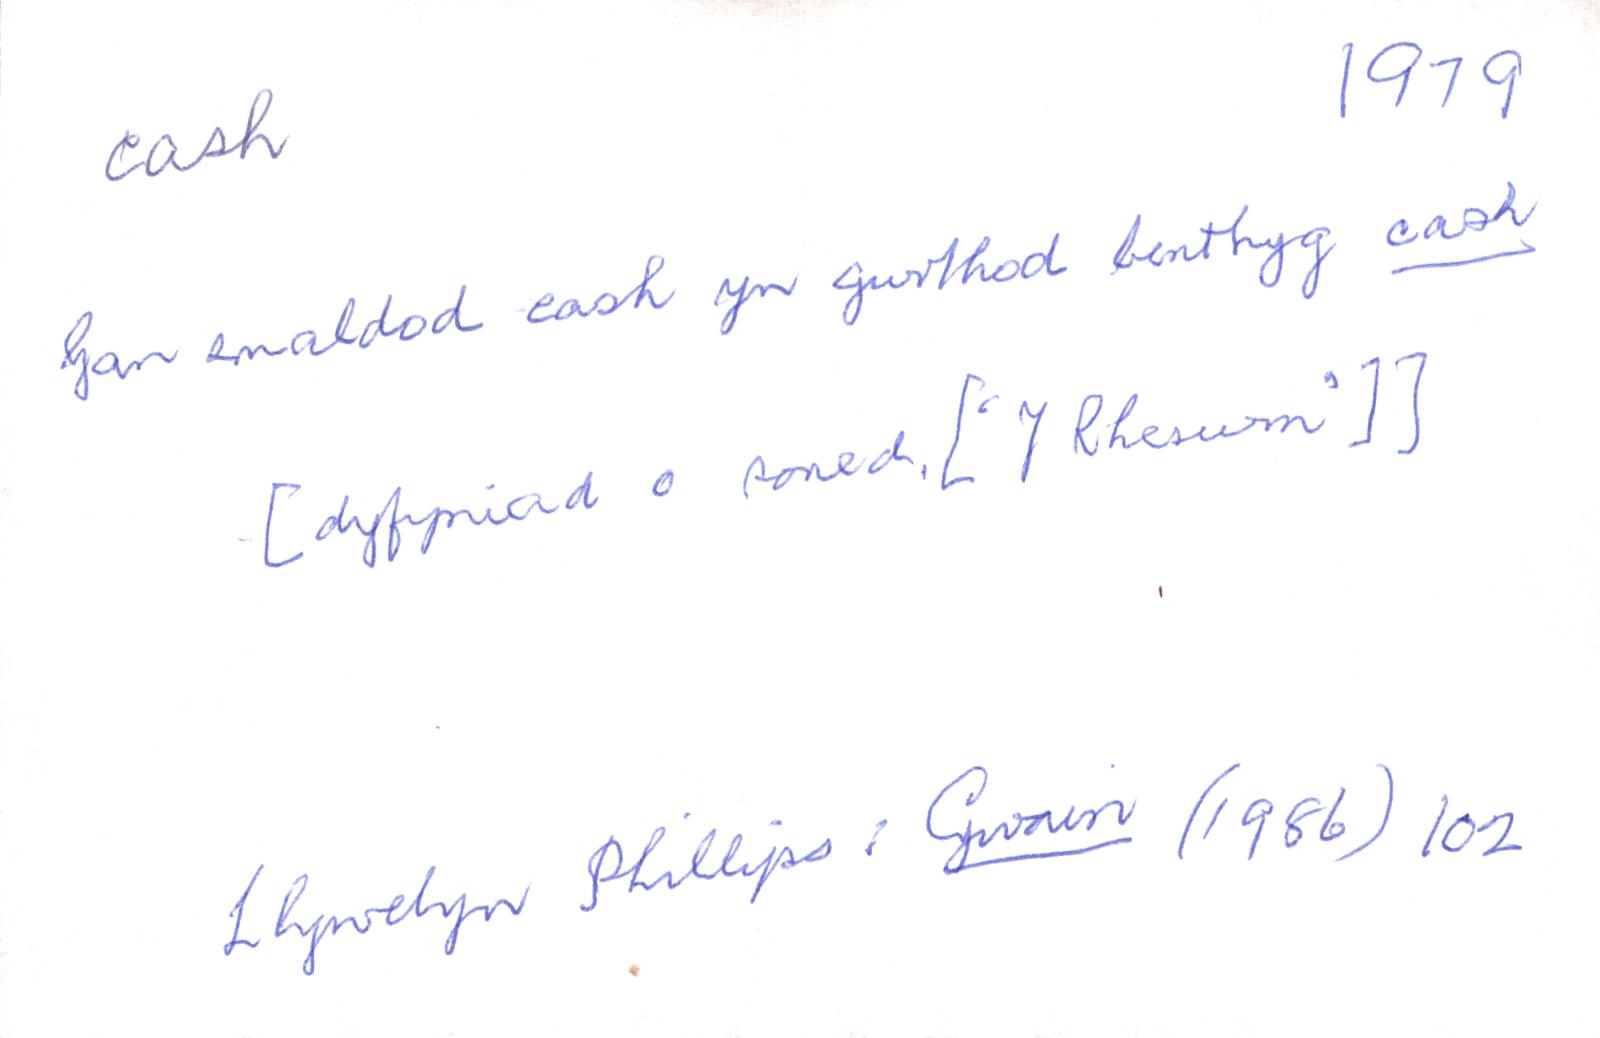 1979
cash
Gan smaldod cash yn gwrthod benthyg cash
[dyfyniad o soned, [‘Y Rheswm’]]
Llywelyn Phillips: Gwaun (1986) 102